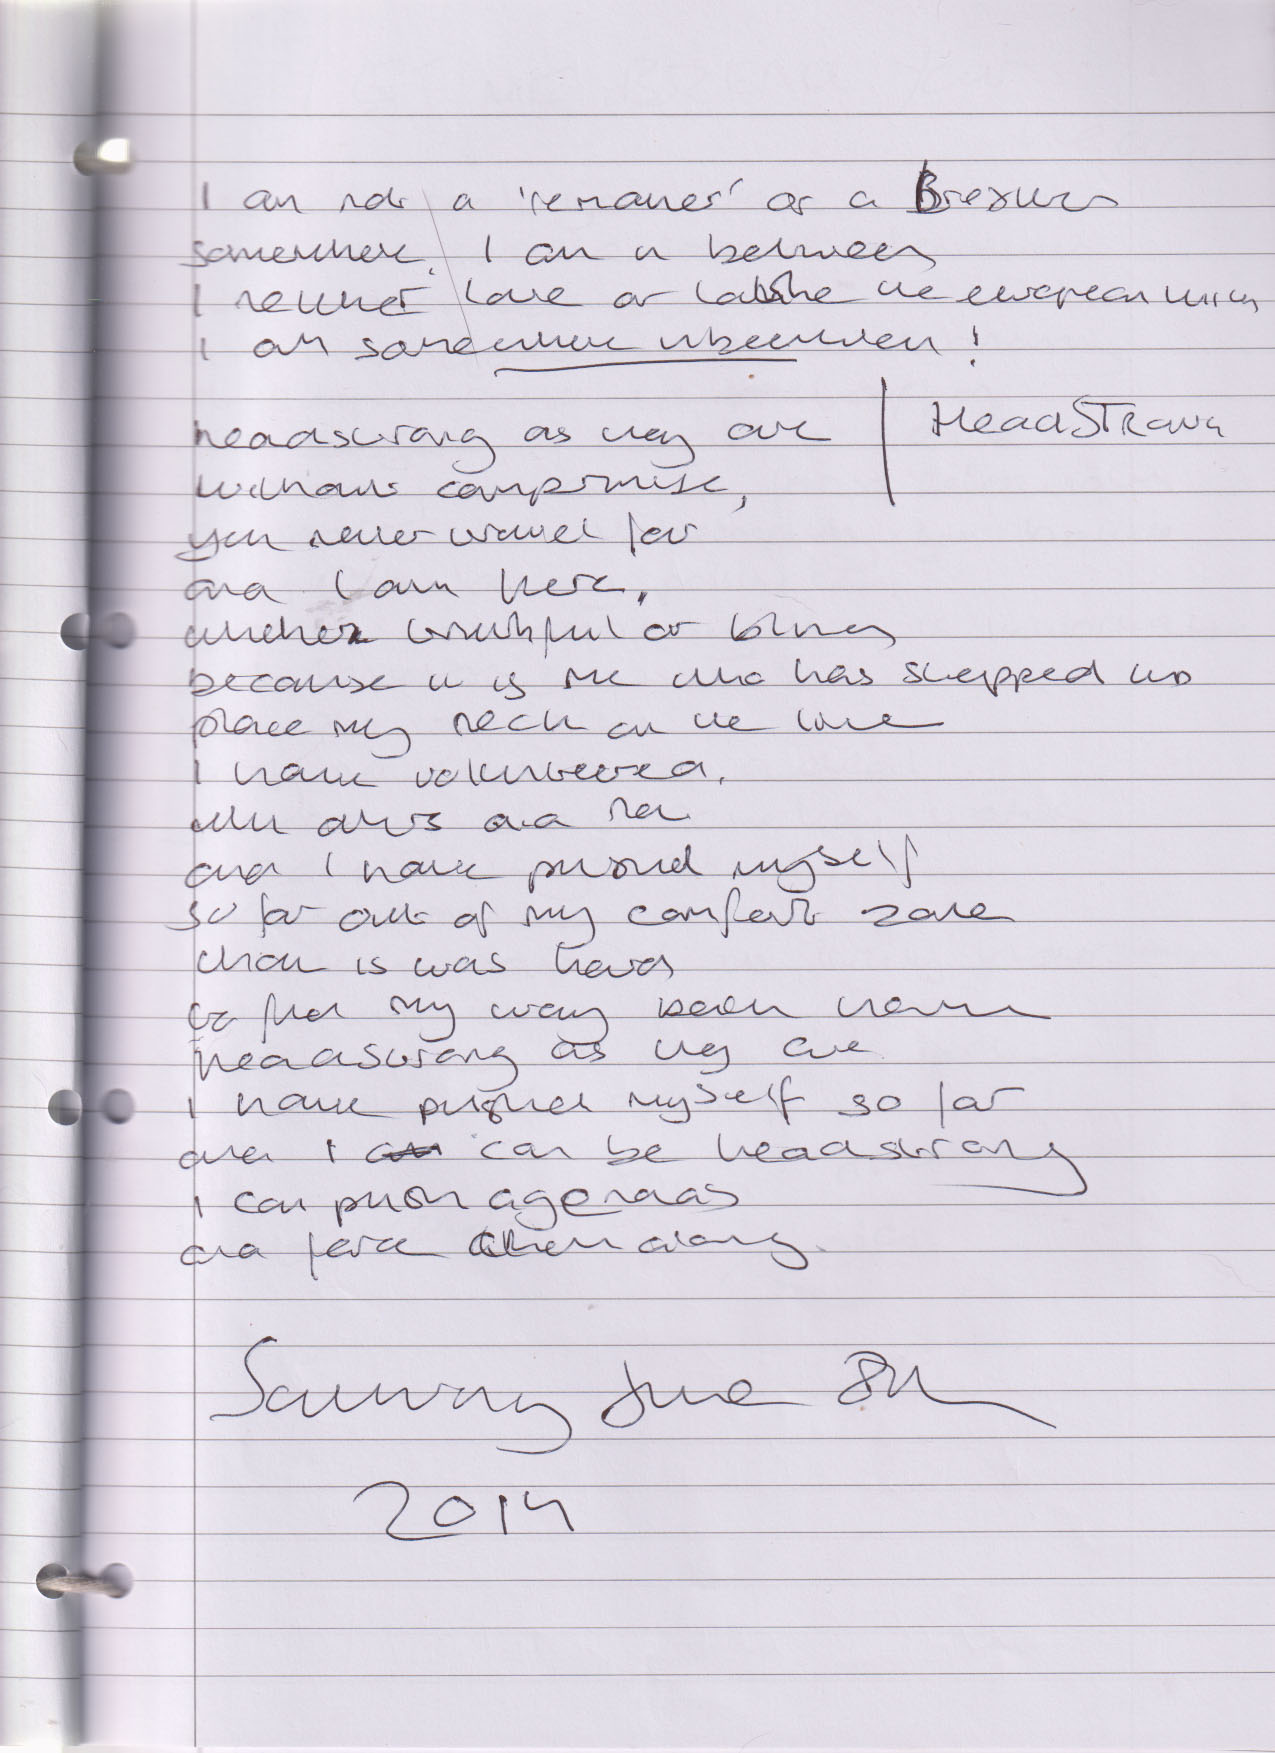 I am not a 'remainer' or a Brexiter
somewhere. I am a between
I neither love or loathe the european union
I am somewhere inbetween!
headstrong as they are
HeadStrong
without compromise,
you never travel far
and I am here,
whether truthful or
because it is me who has stepped up
place my neck on the line
I have volunteered,
and
and I have pushed myself
so far out of my comfort zone
that is was hard
to find my way back home
headstrong as they are
I have pushed myself so far
and I can be headstrong
I can push agendas
and force them along.
2014